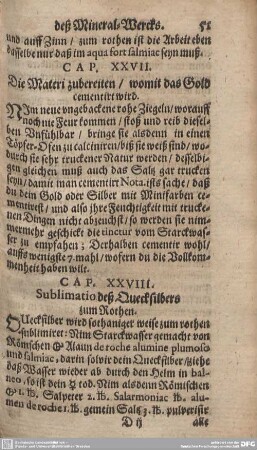 deß Mineral-Wercks. 51
und auff Zinn / zum rothen ist die Arbeit eben
dasselbe nur daß im aqua fort salmiac seyn muß.
CAP. XXVII.
Die Materi zubereiten / womit das Gold
cementirt wird.
NIm neue ungebackene rohe Ziegeln / worauff
noch nie Feur kommen / stoß und reib dieselben
Unfühlbar / bringe sie alsdenn in einen
Töpfer-Ofen zu calciniren / biß sie weiß sind / wodurch
sie sehr truckener Natur werden / desselbigen
gleichen muß auch das Saltz gar trucken
seyn / damit man cementirt Nota. ists sache / daß
du dein Gold oder Silber mit Mixfarben cementirest /
und also ihre Feuchtigkeit mit truckenen
Dingen nicht abzeuchst / so werden sie nimmermehr
geschickt die tinctur vom Starckwasser
zu empfahen; Derhalben cementir wohl /
auffs wenigste 7. mahl / wofern du die Vollkommenheit
haben wilt.
CAP. XXVIII.
Sublimatio deß Quecksilbers
zum Rothen.
QUecksilber wird sothaniger weise zum rothen
sublimiret: Nim Starckwasser gemacht von
Römschen Alaun de roche alumine plumoso
und salmiac, darin solvir dein Quecksilber / ziehe
daß Wasser wieder ab durch den Helm in balneo,
so ist dein ☿ tod. Nim alsdenn Römischen
1. ℔. Salpeter 2. ℔. Salarmoniac ℔. alumen
de roche 1. ℔. gemein Saltz 3. ℔. pulverisir
D ij alle